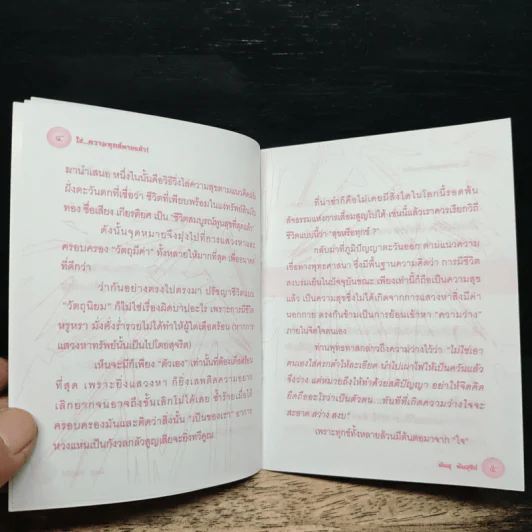 ๔ ใช่...ความทุกข์ตายแล้ว!
มานำเสนอ หนึ่งในนั้นคือวิธีวิ่งไล่ความสุขตามแนวคิดฝั่ง
ฝั่งตะวันตกที่เชื่อว่า ชีวิตที่เพียบพร้อมในแง่ทรัพย์สินเงิน
ทอง ชื่อเสียง เกียรติยศ เป็น "ชีวิตสมบูรณ์พูนสุขที่สุดแล้ว"
ดังนั้นจุดหมายจึงมุ่งไปที่การแสวงหาและ
ครอบครอง "วัตถุมีค่า" ทั้งหลายให้มากที่สุด เพื่ออนาคต
ที่ดีกว่า
ว่ากันอย่างตรงไปตรงมา ปรัชญาชีวิตแบบ
"วัตถุนิยม" ก็ไม่ใช่เรื่องผิดบาปอะไร เพราะการมีชีวิต
หรูหรา มั่งคั่งร่ำรวยไม่ได้ทำให้ผู้ใดเดือดร้อน (หากการ
แสวงหาทรัพย์นั้นเป็นไปโดยสุจริต)
เห็นจะมีก็เพียง "ตัวเอง" เท่านั้นที่ต้องเดือดร้อน
ที่สุด เพราะยิ่งแสวงหา ก็ยิ่งเสพติดความอยาก
เลิกยากจนอาจถึงขั้นเลิกไม่ได้เลย ซ้ำร้ายเมื่อได้
ครอบครองมันและคิดว่าสิ่งนั้น "เป็นของเรา" อาการ
หวงแหนเป็นกังวลกลัวสูญเสียจะยิ่งทวีคูณ
ที่น่าขำก็คือไม่เคยมีสิ่งใดในโลกนี้รอดพ้น
สัจธรรมแห่งการเสื่อมสูญไปได้ เช่นนี้แล้วเราควรเรียกวิถี
ชีวิตแบบนี้ว่า "สุขหรือทุกข์ ?"
กลับมาที่ภูมิปัญญาตะวันออก ตามแนวความ
เชื่อทางพุทธศาสนา ซึ่งมีพื้นฐานความคิดว่า การมีชีวิต
สงบร่มเย็นในปัจจุบันขณะ เพียงเท่านี้ก็ถือเป็นความสุข
แล้ว เป็นความสุขซึ่งไม่ได้เกิดจากการแสวงหาสิ่งมีค่า
นอกกาย ตรงกันข้ามเป็นการย้อนเข้าหา "ความว่าง"
ภายในจิตใจตนเอง
ท่านพุทธทาสกล่าวถึงความว่างไว้ว่า "ไม่ใช่เอา
ตนเองใส่ครกตำให้ละเอียด นำไปเผาไฟให้เป็นควันแล้ว
จึงว่าง แต่หมายถึงให้ทำด้วยสติปัญญา อย่าให้จิตคิด
ยึดถืออะไรว่าเป็นตัวตน ...ทันทีที่เกิดความว่างใจจะ
สะอาด สว่าง สงบ"
เพราะทุกข์ทั้งหลายล้วนมีต้นตอมาจาก "ใจ"
พันสุ พันสุริย์ ๕